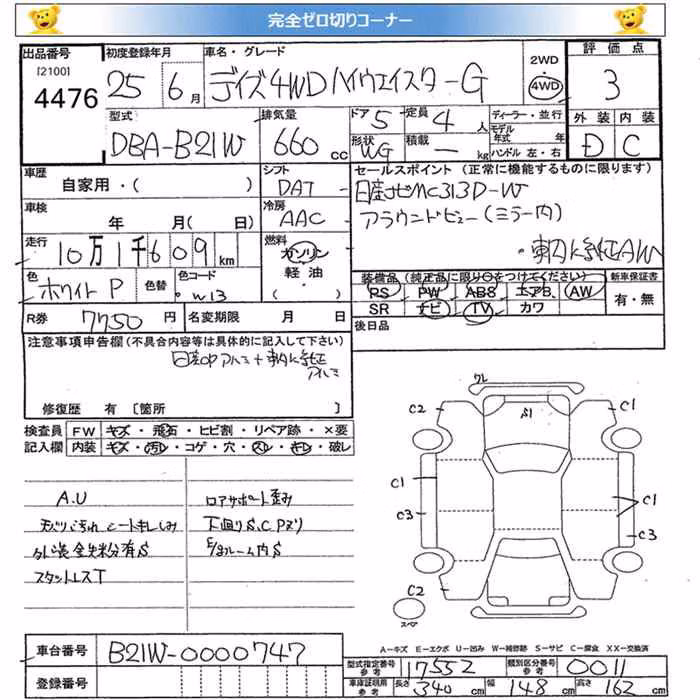 完全ゼロ切りコーナー
出品番号 初度登録年月 車名・グレード 2WD 評価点
[2100]
4476 25 6月 デイズ4WDハイウェイスターG 4WD 3
型式 排気量 ドア 定員 ディーラー・並行 外装 内装
DBA-B21W 660cc 5 4人 モデル年式 年 D C
形状 WG 積載 ― kg ハンドル 左・右
車歴 シフト セールスポイント(正常に機能するものに限ります)
自家用・( ) DAT 日産ナビMC313D-W
車検 冷房 アラウンドビュー(ミラー内)
年 月( 日) AAC
走行 燃料 ・車内に純正AW
10万1千609km ガソリン
軽油
・( )
色 色替 色コード 装備品(純正品に限り○をつけてください) 新車保証書
ホワイトP W13 PS PW ABS エアB AW 有・無
SR ナビ TV カワ
R券 7750円 名変期限 月 日 後日品
注意事項申告欄(不具合内容等は具体的に記入して下さい)
日産OPアルミ+車内に純正
アルミ
修復歴 有〔箇所 〕
検査員 FW キズ・飛石・ヒビ割・リペア跡・×要
記入欄 内装 キズ・汚れ・コゲ・穴・スレ・キレ・破レ
ワレ
C2 S1 C1
C1 C1
C3 C3
C2
スペア
A.U ロアサポート歪み
天バリヨゴれ シートキレしみ 下廻りS.C Pヌリ
外装金失粉有S E/gルーム内S
スタットレスT
A―キズ E―エクボ U―凹み W―補修跡 S―サビ C―腐食 XX―交換済
車台番号 B21W-0000747 型式指定番号 参考 17552 類別区分番号 参考 0011
登録番号 車庫証明用 参考 長さ 340cm 幅 148cm 高さ 162cm